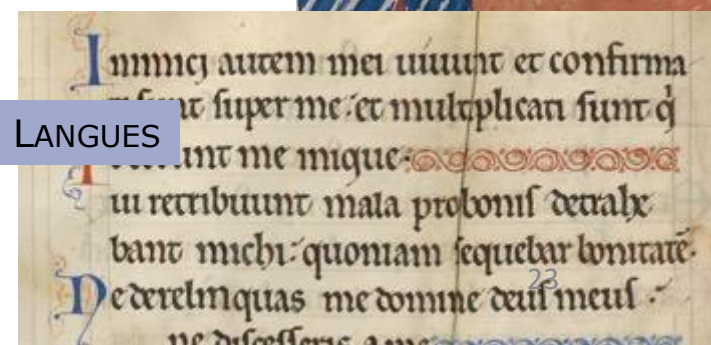 Inimici autem mei uiuunt et confirma
sunt super me: et multiplicati sunt q̇
LANGUES
unt me inique:
ui retribuunt mala pro bonis detrahe
bant michi: quoniam sequebar bonitatē.
23
Ne derelinquas me domine deus meus:
ne discesseris a me